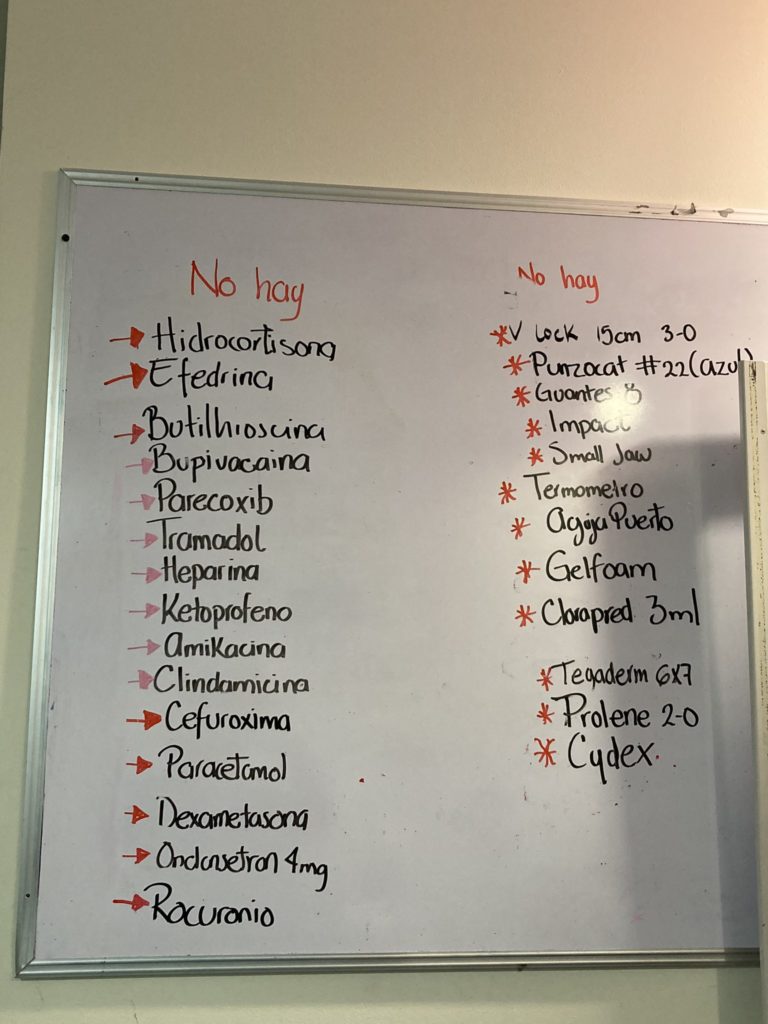 No hay
Hidrocortisona
Efedrina
Butilhioscina
Bupivacaina
Parecoxib
Tramadol
Heparina
Ketoprofeno
Amikacina
Clindamicina
Cefuroxima
Paracetamol
Dexametasona
Ondansetron 4mg
Rocuronio
No hay
V Lock 15cm 3-0
Punzocat #22 (azul)
Guantes 8
Impact
Small Jaw
Termometro
Aguja Puerto
Gelfoam
Clorapred 3ml
Tegaderm 6x7
Prolene 2-0
Cydex.